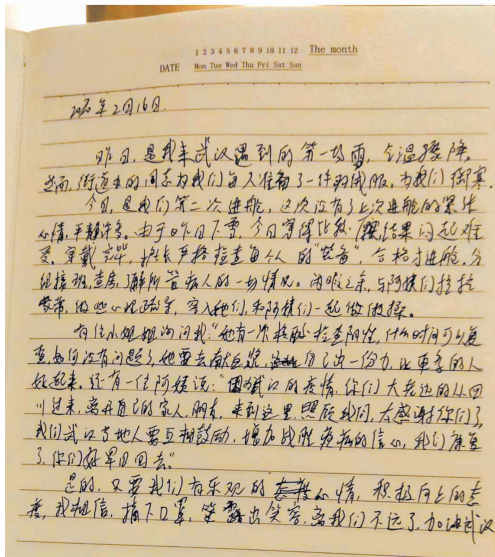 1 2 3 4 5 6 7 8 9 10 11 12 The month
DATE Mon Tue Wed Thu Fri Sat Sun
2020年2月16日.
昨日,是我来武汉遇到的第一场雨,气温骤降,
当雨,街道办的同志为我们每人准备了一件羽绒服,为我们御寒.
今日,是我们第二次进舱,这次没有了上次进舱的紧张
心情,平静许多.由于昨日下雪,今日穿得比较 结果闷起难
受,穿戴完毕,护长严格检查每个人的"装备",合格才进舱,分
组接班,查房,了解所管病人的一切情况.闲暇之余,与阿姨们拉拉
家常,做些心理疏导,穿入她们,和阿姨们一起做做操.
有位小姐姐询问我,"她有一次核酸检查阳性,什么时间可以复
查,如何没有问题了,她要去献血浆,自己出一份力,让更多的人
好起来,还有一位阿姨说:"因为武口的疫情,你们大老远的从四
川过来,离开自己的家人,朋友,来到这里照顾我们,太感谢你们了,
我们武口当地人要互相鼓励,增加战胜疫病的信心,我们康复
了,你们好早日回去."
是的,只要我们有乐观的心情,积极向上的态
度,我相信,摘下口罩,笑露出笑容,离我们不远了,加油武汉